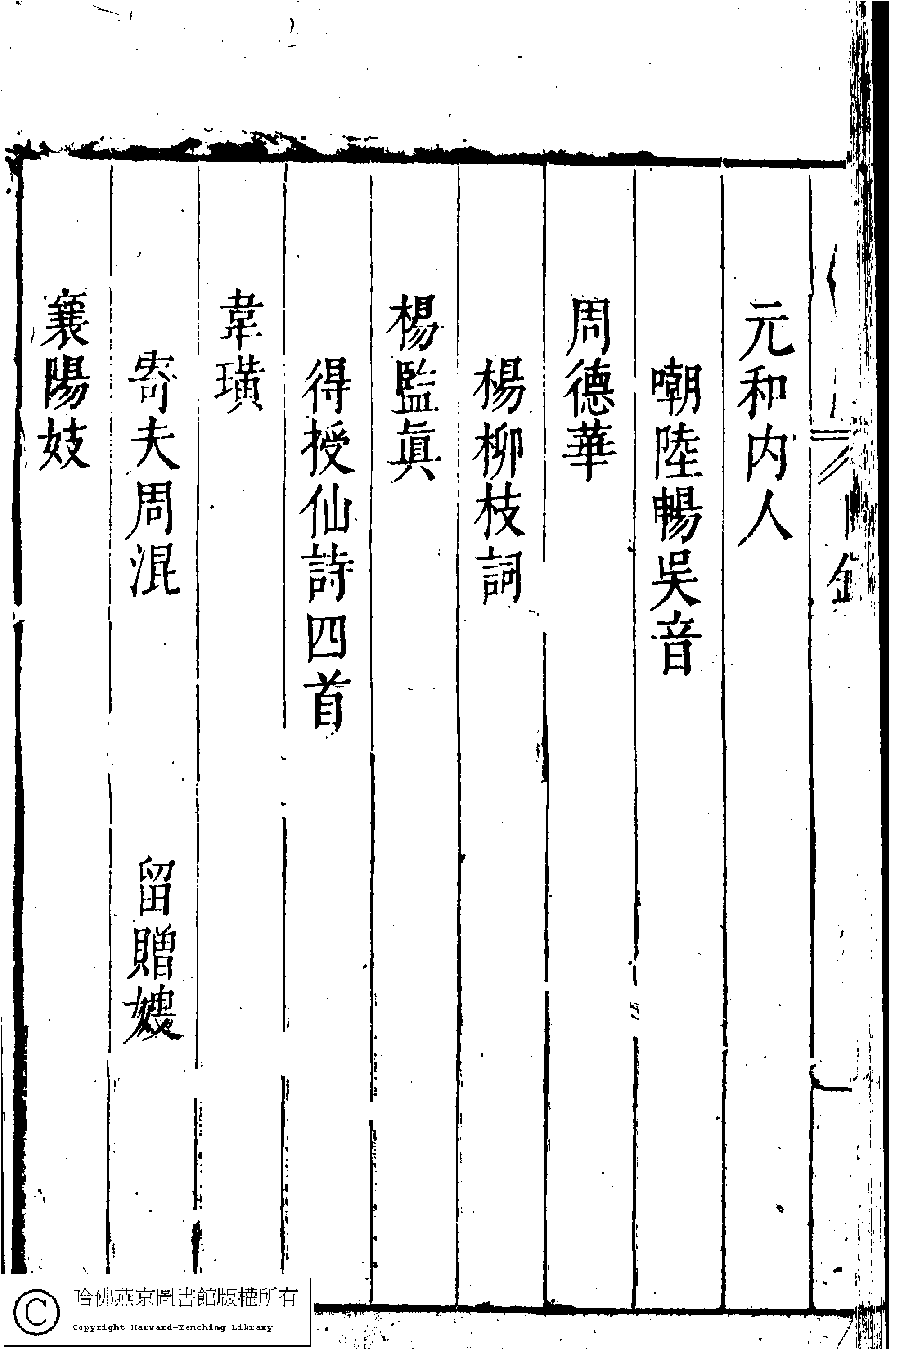 元和内人
嘲陸暢吳音
周德華
楊柳枝詞
楊監眞
得授仙詩四首
韋璜
寄夫周混 留贈嫂
襄陽妓
哈佛燕京圖書館版權所有
Copyright Harvard-Yenching Library